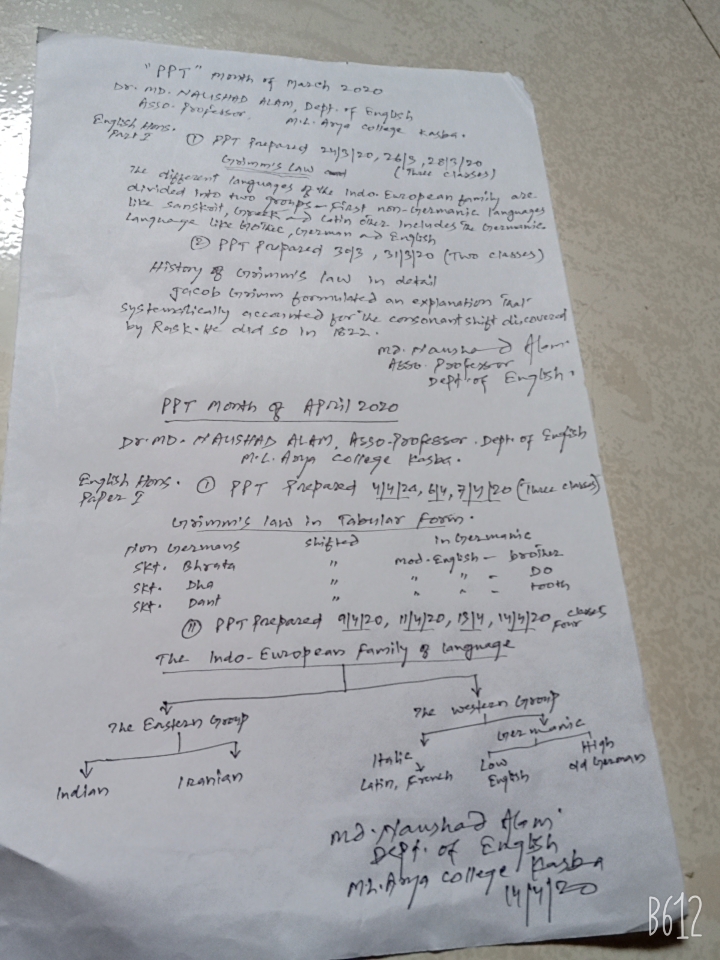 "PPT" Month of March 2020
Dr. MD. NAUSHAD ALAM, Dept. of English
Asso. Professor. M.L. Arya College Kasba.
English Hons.
Part I
① PPT Prepared 24/3/20, 26/3, 28/3/20
Grimm's Law (Three classes)
The different languages of the Indo-European family are
divided into two groups - First non-Germanic languages
like Sanskrit, Greek and Latin other includes the Germanic
Language like Gothic, German and English
② PPT Prepared 30/3, 31/3/20 (Two classes)
History of Grimm's law in detail
Jacob Grimm formulated an explanation that
systematically accounted for the consonant shift discovered
by Rask. He did so in 1822.
Md. Naushad Alam.
Asso. Professor
Dept. of English.
PPT Month of April 2020
Dr. MD. NAUSHAD ALAM, Asso-Professor. Dept. of English
M.L. Arya College Kasba.
English Hons.
Paper I
① PPT Prepared 4/4/20, 6/4, 7/4/20 (Three classes)
Grimm's law in Tabular Form.
Non Germans shifted in Germanic
Skt. Bhrata " Mod. English - brother
Skt. Dha " " " - Do
Skt. Dant " " " - tooth
② PPT Prepared 9/4/20, 11/4/20, 13/4, 14/4/20 Four classes
The Indo-European Family of language
The Eastern Group
The Western Group
Indian
Iranian
Italic
Latin, French
Germanic
Low
English
High
old German
Md. Naushad Alam.
Dept. of English
M.L. Arya College Kasba
14/4/20
B612